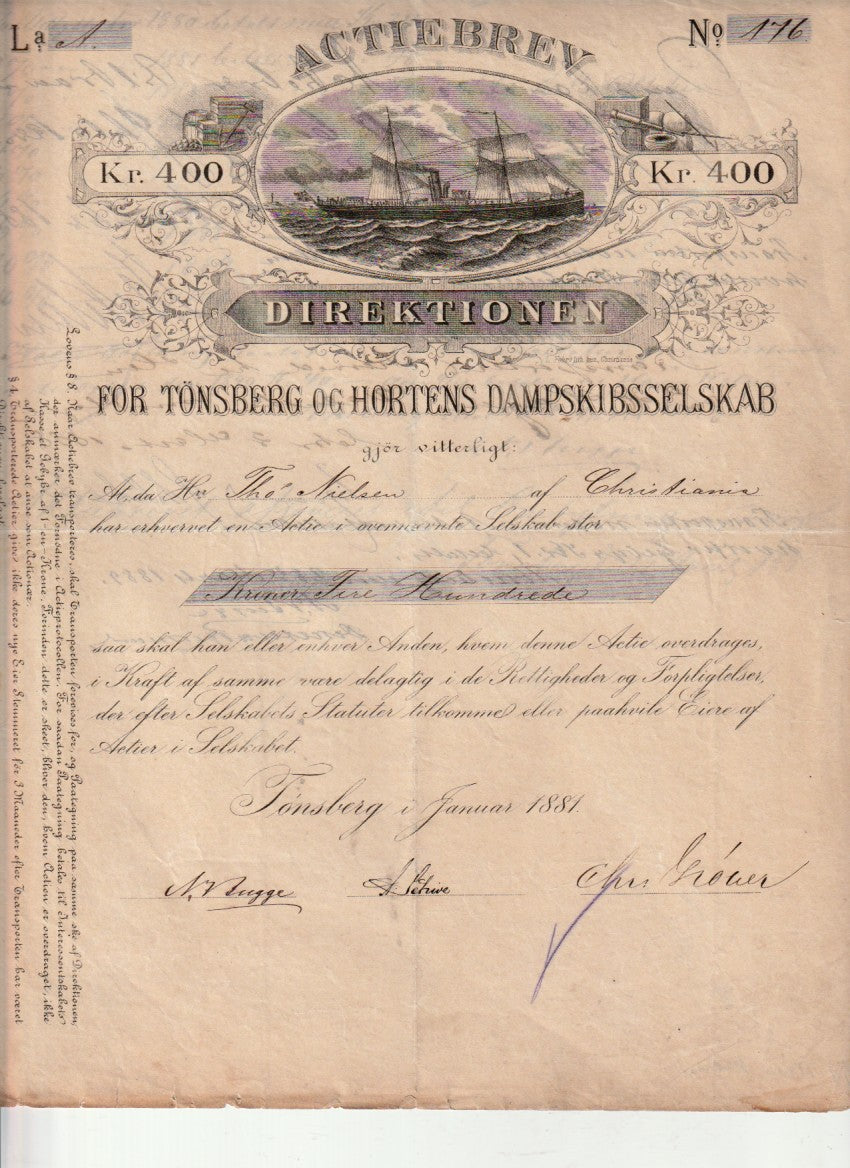 La A.
No 176
ACTIEBREV
Kr. 400
Kr. 400
DIREKTIONEN
FOR TÖNSBERG OG HORTENS DAMPSKIBSSELSKAB
gjör vitterligt:
At da Hrr Ths Nielsen af Christiania
har erhvervet en Actie i ovennævnte Selskab stor
Kroner Fire Hundrede
saa skal han eller enhver Anden, hvem denne Actie overdrages,
i Kraft af samme være delagtig i de Rettigheder og Forpligtelser,
der efter Selskabets Statuter tilkomme eller paahvile Eiere af
Actier i Selskabet.
Tönsberg i Januar 1881.
N. Bugge
Chr.
Lovens § 8. Naar Actiebrev transporteres, skal Transporten forevises for, og Paategning paa samme ske af Direktionen,
der anmærker det Fornødne i Actieprotocollen. For saadan Paategning betales til Interessentskabets
Kasse et Gebyr af 1 - en - Krone. Forinden dette er skeet, bliver den, hvem Actien er overdraget, ikke
af Selskabet at anse som Actionær.
§ 4. Transporterede Actier give ikke deres nye Eier Stemmeret før 3 Maaneder efter Transporten har været